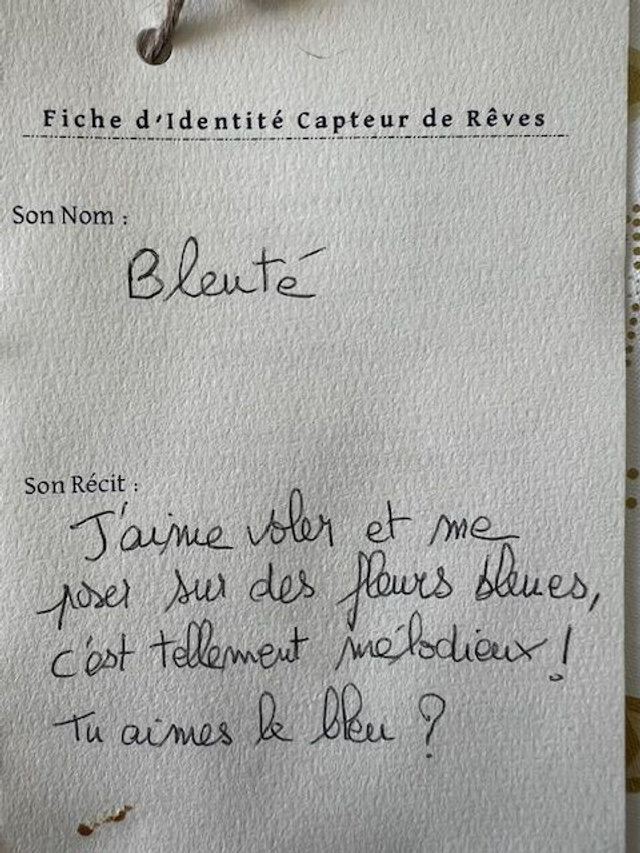 Fiche d'Identité Capteur de Rêves
Son Nom :
Bleuté
Son Récit :
J'aime voler et me
poser sur des fleurs bleues,
c'est tellement mélodieux !
Tu aimes le bleu ?